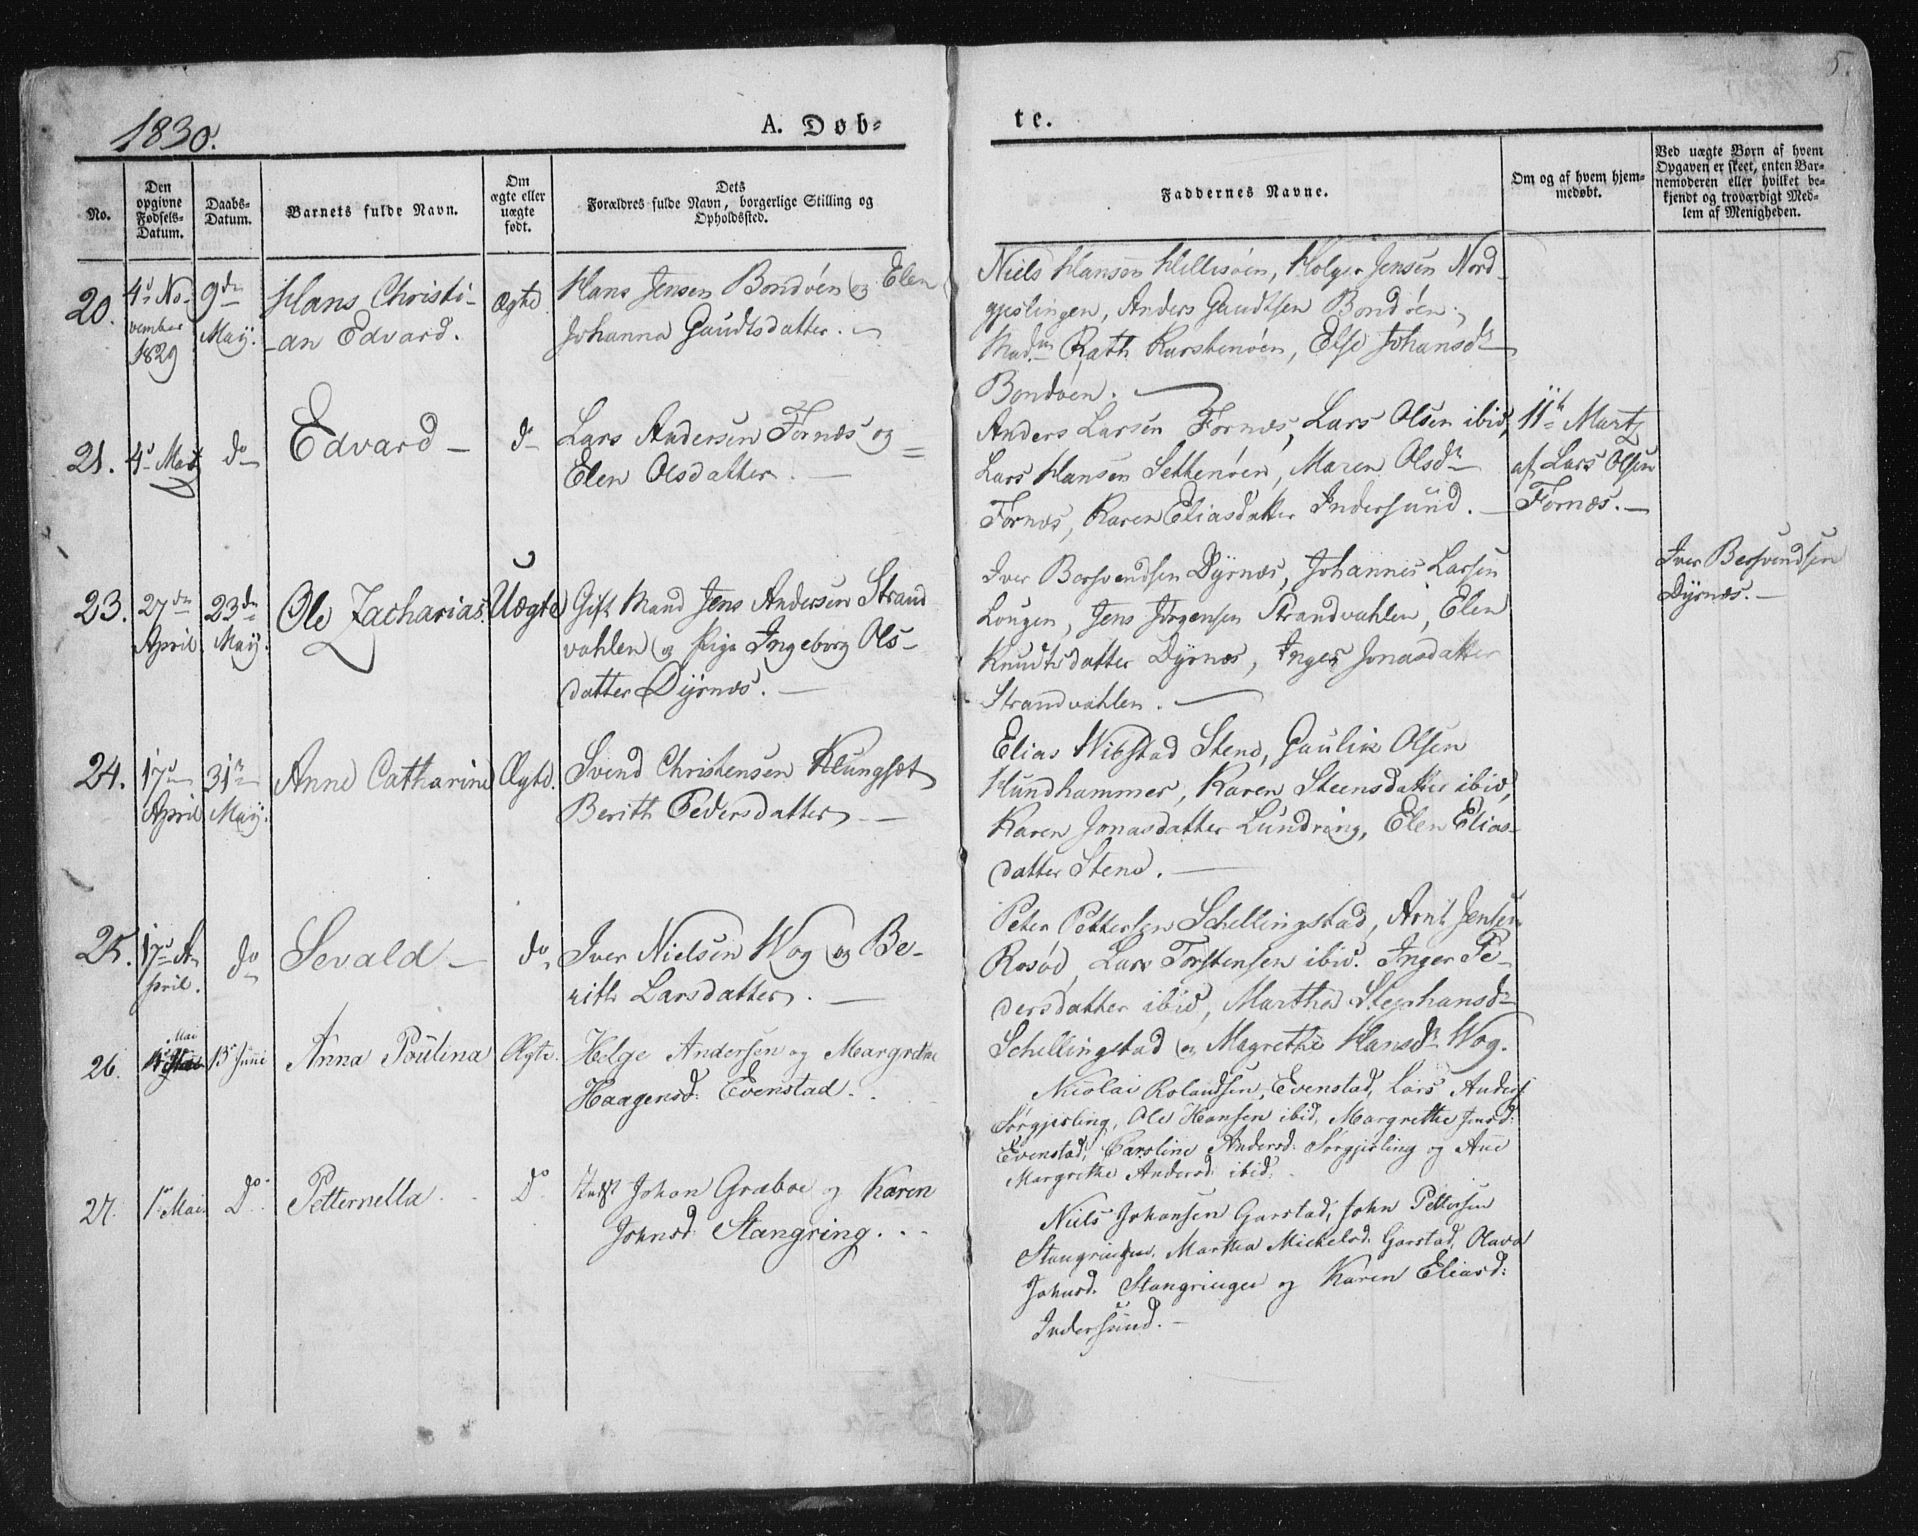 5.
1830.
A. Døb-
te.
No.
Den opgivne Fødsels-Datum.
Daabs-Datum.
Barnets fulde Navn.
Om ægte eller uægte født.
Dets
Forældres fulde Navn, borgerlige Stilling og
Opholdssted.
Faddernes Navne.
Om og af hvem hjem-
medøbt.
Ved uægte Børn af hvem
Opgaven er skeet, enten Bar-
nemoderen eller hvilket be-
kjendt og troværdigt Med-
lem af Menigheden.
20.
4de No-
vember
1829
9de
May.
Hans Christi-
an Edvard.
Ægte
Hans Jensen Bondøen og Elen
Johanna Gaudtsdatter.
Niels Hansen Hillisøen, Holger Jensen Nord-
gjeslingen, Anders Gaudtsen Bondøen,
Mad. Rath Karstenøen, Else Johansdr
Bondøen.
21.
4de May
do
Edvard
do
Lars Andersen Fornæs og
Elen Olsdatter.
Anders Larsen Fornæs, Lars Olsen ibid,
Lars Hansen Settenøen, Maren Olsdr
Fornæs, Karen Eliasdatter Indersund.
11te Martz
af Lars Olsen
Fornæs.
23.
27de
April
23de
May.
Ole Zacharias
Uægte
Gift Mand Jens Andersen Strand
vahlen og Pige Ingeborg Ols-
datter Dyrnæs.
Iver Bersvendsen Dyrnæs, Johannes Larsen
Lougen, Jens Jørgensen Strandvahlen, Elen
Knudtsdatter Dyrnæs, Inger Jonasdatter
Strandvahlen.
Iver Bersvendsen
Dyrnæs.
24.
17de
April
31te
May.
Anne Catharine
Ægte.
Svend Christensen Klungset
Berith Pedersdatter
Elias Wiebstad Steno, Gaulik Olsen
Hundhammer, Karen Steensdatter ibid,
Karen Jonasdatter Lundring, Elen Elias-
datter Steno.
25.
17de A-
pril.
do
Sevald
do
Iver Nielsen Wog og Be-
rith Larsdatter.
Peter Pettersen Schellingstad, Arnt Jensen
Rosød, Lars Torstensen ibid. Inger Pe-
dersdatter ibid, Martha Stephansdr
Schellingstad og Magrethe Hansdr Wog.
26.
Mai
13de Juni
Anna Poulina
Ægte.
Helge Andersen og Margrethe
Haagensd: Evenstad.
Nicolai Rolandsen, Evenstad, Lars Anders
Sørgjesling, Ole Hansen ibid, Margrethe Jensd:
Evenstad, Caroline Andersd: Sørgjesling og Ane
Margrethe Andersd: ibid:
27.
1te Mai
Do
Petternella
Do
Johan Graboe og Karen
Johnsd: Stangring.
Niels Johansen Garstad, John Pettersen
Stangringen, Martha Mickelsd. Garstad, Olava
Johnsd. Stangringen og Karen Eliasd:
Indersund.